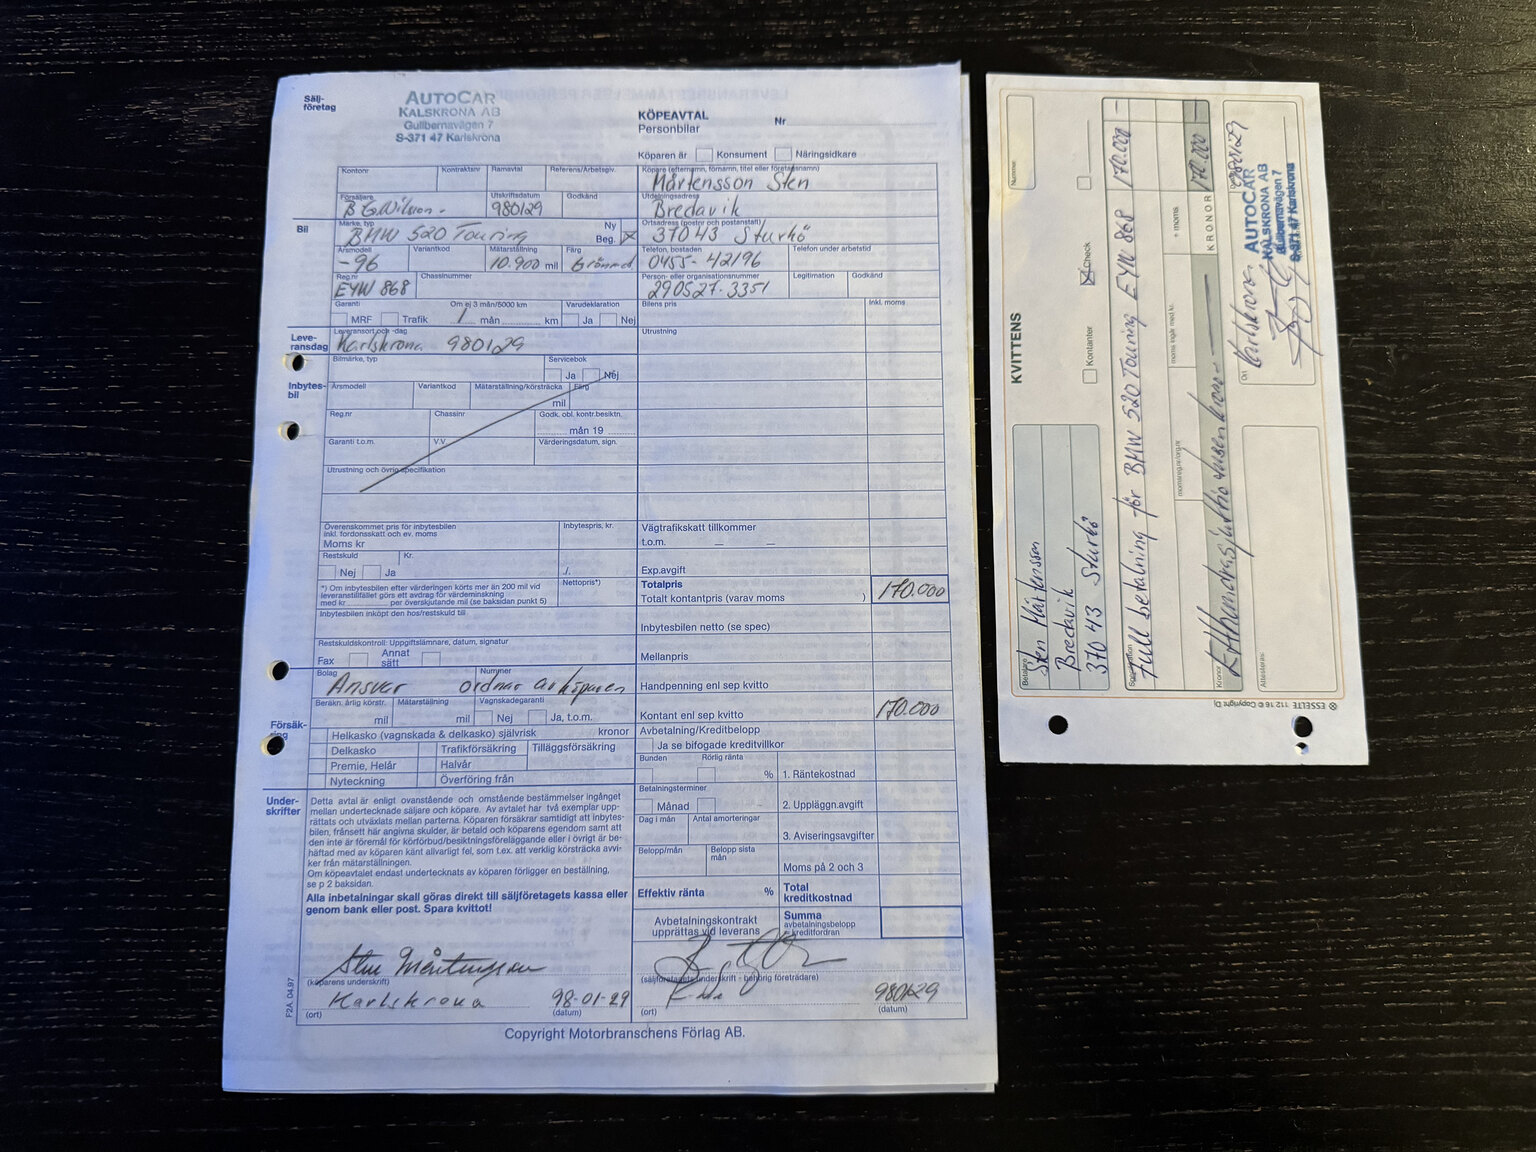 Sälj-
företag
AUTOCAR
KALSKRONA AB
Gullbernavägen 7
S-371 47 Karlskrona
KÖPEAVTAL
Personbilar
Nr
Köparen är Konsument Näringsidkare
Kontonr Kontraktsnr Ramavtal Referens/Arbetsgiv.
Köpare (efternamn, förnamn, titel eller företagsnamn)
Mårtensson Sten
Försäljare Utskriftsdatum Godkänd
B G Nilsson 980129
Utdelningsadress
Bredavik
Bil
Märke, typ Ny
BMW 520 Touring Beg.
Ortsadress (postnr och postanstalt)
370 43 Sturkö
Årsmodell Variantkod Mätarställning Färg
-96 10.900 mil Grönmet
Telefon, bostaden Telefon under arbetstid
0455-42196
Reg.nr Chassinummer
EYW 868
Person- eller organisationsnummer Legitimation Godkänd
290527-3351
Garanti Om ej 3 mån/5000 km Varudeklaration
MRF Trafik 1 mån km Ja Nej
Bilens pris Inkl. moms
Leve-
ransdag
Leveransort och -dag
Karlskrona 980129
Utrustning
Inbytes-
bil
Bilmärke, typ Servicebok
Ja Nej
Årsmodell Variantkod Mätarställning/körsträcka Färg
mil
Reg.nr Chassinr Godk. obl. kontr.besiktn.
mån 19
Garanti t.o.m. V.V Värderingsdatum, sign.
Utrustning och övrig specifikation
Överenskommet pris för inbytesbilen
inkl. fordonsskatt och ev. moms
Moms kr
Inbytespris, kr.
Restskuld Kr.
Nej Ja ./.
*) Om inbytesbilen efter värderingen körts mer än 200 mil vid
leveranstillfället görs ett avdrag för värdeminskning
med kr per överskjutande mil (se baksidan punkt 5)
Nettopris*)
Inbytesbilen inköpt den hos/restskuld till
Restskuldskontroll: Uppgiftslämnare, datum, signatur
Fax Annat
sätt
Vägtrafikskatt tillkommer
t.o.m.
Exp.avgift
Totalpris
Totalt kontantpris (varav moms ) 170.000
Inbytesbilen netto (se spec)
Mellanpris
Handpenning enl sep kvitto
Kontant enl sep kvitto 170.000
Försäk-
ring
Bolag Nummer
Ansvar ordnar av köparen
Beräkn. årlig körstr. Mätarställning Vagnskadegaranti
mil mil Nej Ja, t.o.m.
Helkasko (vagnskada & delkasko) självrisk kronor
Delkasko Trafikförsäkring Tilläggsförsäkring
Premie, Helår Halvår
Nyteckning Överföring från
Avbetalning/Kreditbelopp
Ja se bifogade kreditvillkor
Bunden Rörlig ränta
% 1. Räntekostnad
Betalningsterminer
Månad 2. Uppläggn.avgift
Dag i mån Antal amorteringar
3. Aviseringsavgifter
Belopp/mån Belopp sista
mån
Moms på 2 och 3
Effektiv ränta % Total
kreditkostnad
Avbetalningskontrakt
upprättas vid leverans
Summa
avbetalningsbelopp
= kreditfordran
Under-
skrifter
Detta avtal är enligt ovanstående och omstående bestämmelser ingånget
mellan undertecknade säljare och köpare. Av avtalet har två exemplar upp-
rättats och utväxlats mellan parterna. Köparen försäkrar samtidigt att inbytes-
bilen, frånsett här angivna skulder, är betald och köparens egendom samt att
den inte är föremål för körförbud/besiktningsföreläggande eller i övrigt är be-
häftad med av köparen känt allvarligt fel, som t.ex. att verklig körsträcka avvi-
ker från mätarställningen.
Om köpeavtalet endast undertecknats av köparen föreligger en beställning,
se p 2 baksidan.
Alla inbetalningar skall göras direkt till säljföretagets kassa eller
genom bank eller post. Spara kvittot!
Sten Mårtensson
(köparens underskrift)
(säljföretagets underskrift - behörig företrädare)
Karlskrona 98-01-29
(ort) (datum)
980129
(ort) (datum)
F2A 04.97
Copyright Motorbranschens Förlag AB.
KVITTENS
Nummer
Kontanter Check
Betalare
Sten Mårtensson
Bredavik
370 43 Sturkö
Specifikation
Full betalning för BMW 520 Touring EYW 868 170.000 —
momsreg.nr/org.nr moms ingår med kr. + moms
Kronor KRONOR
Etthundrasjuttiotusenkronor 170.000 —
Attesteras
Ort Datum
Karlskrona 980129
AUTOCAR
KALSKRONA AB
Gullbernavägen 7
S-371 47 Karlskrona
ESSELTE 112 16 © Copyright Dj